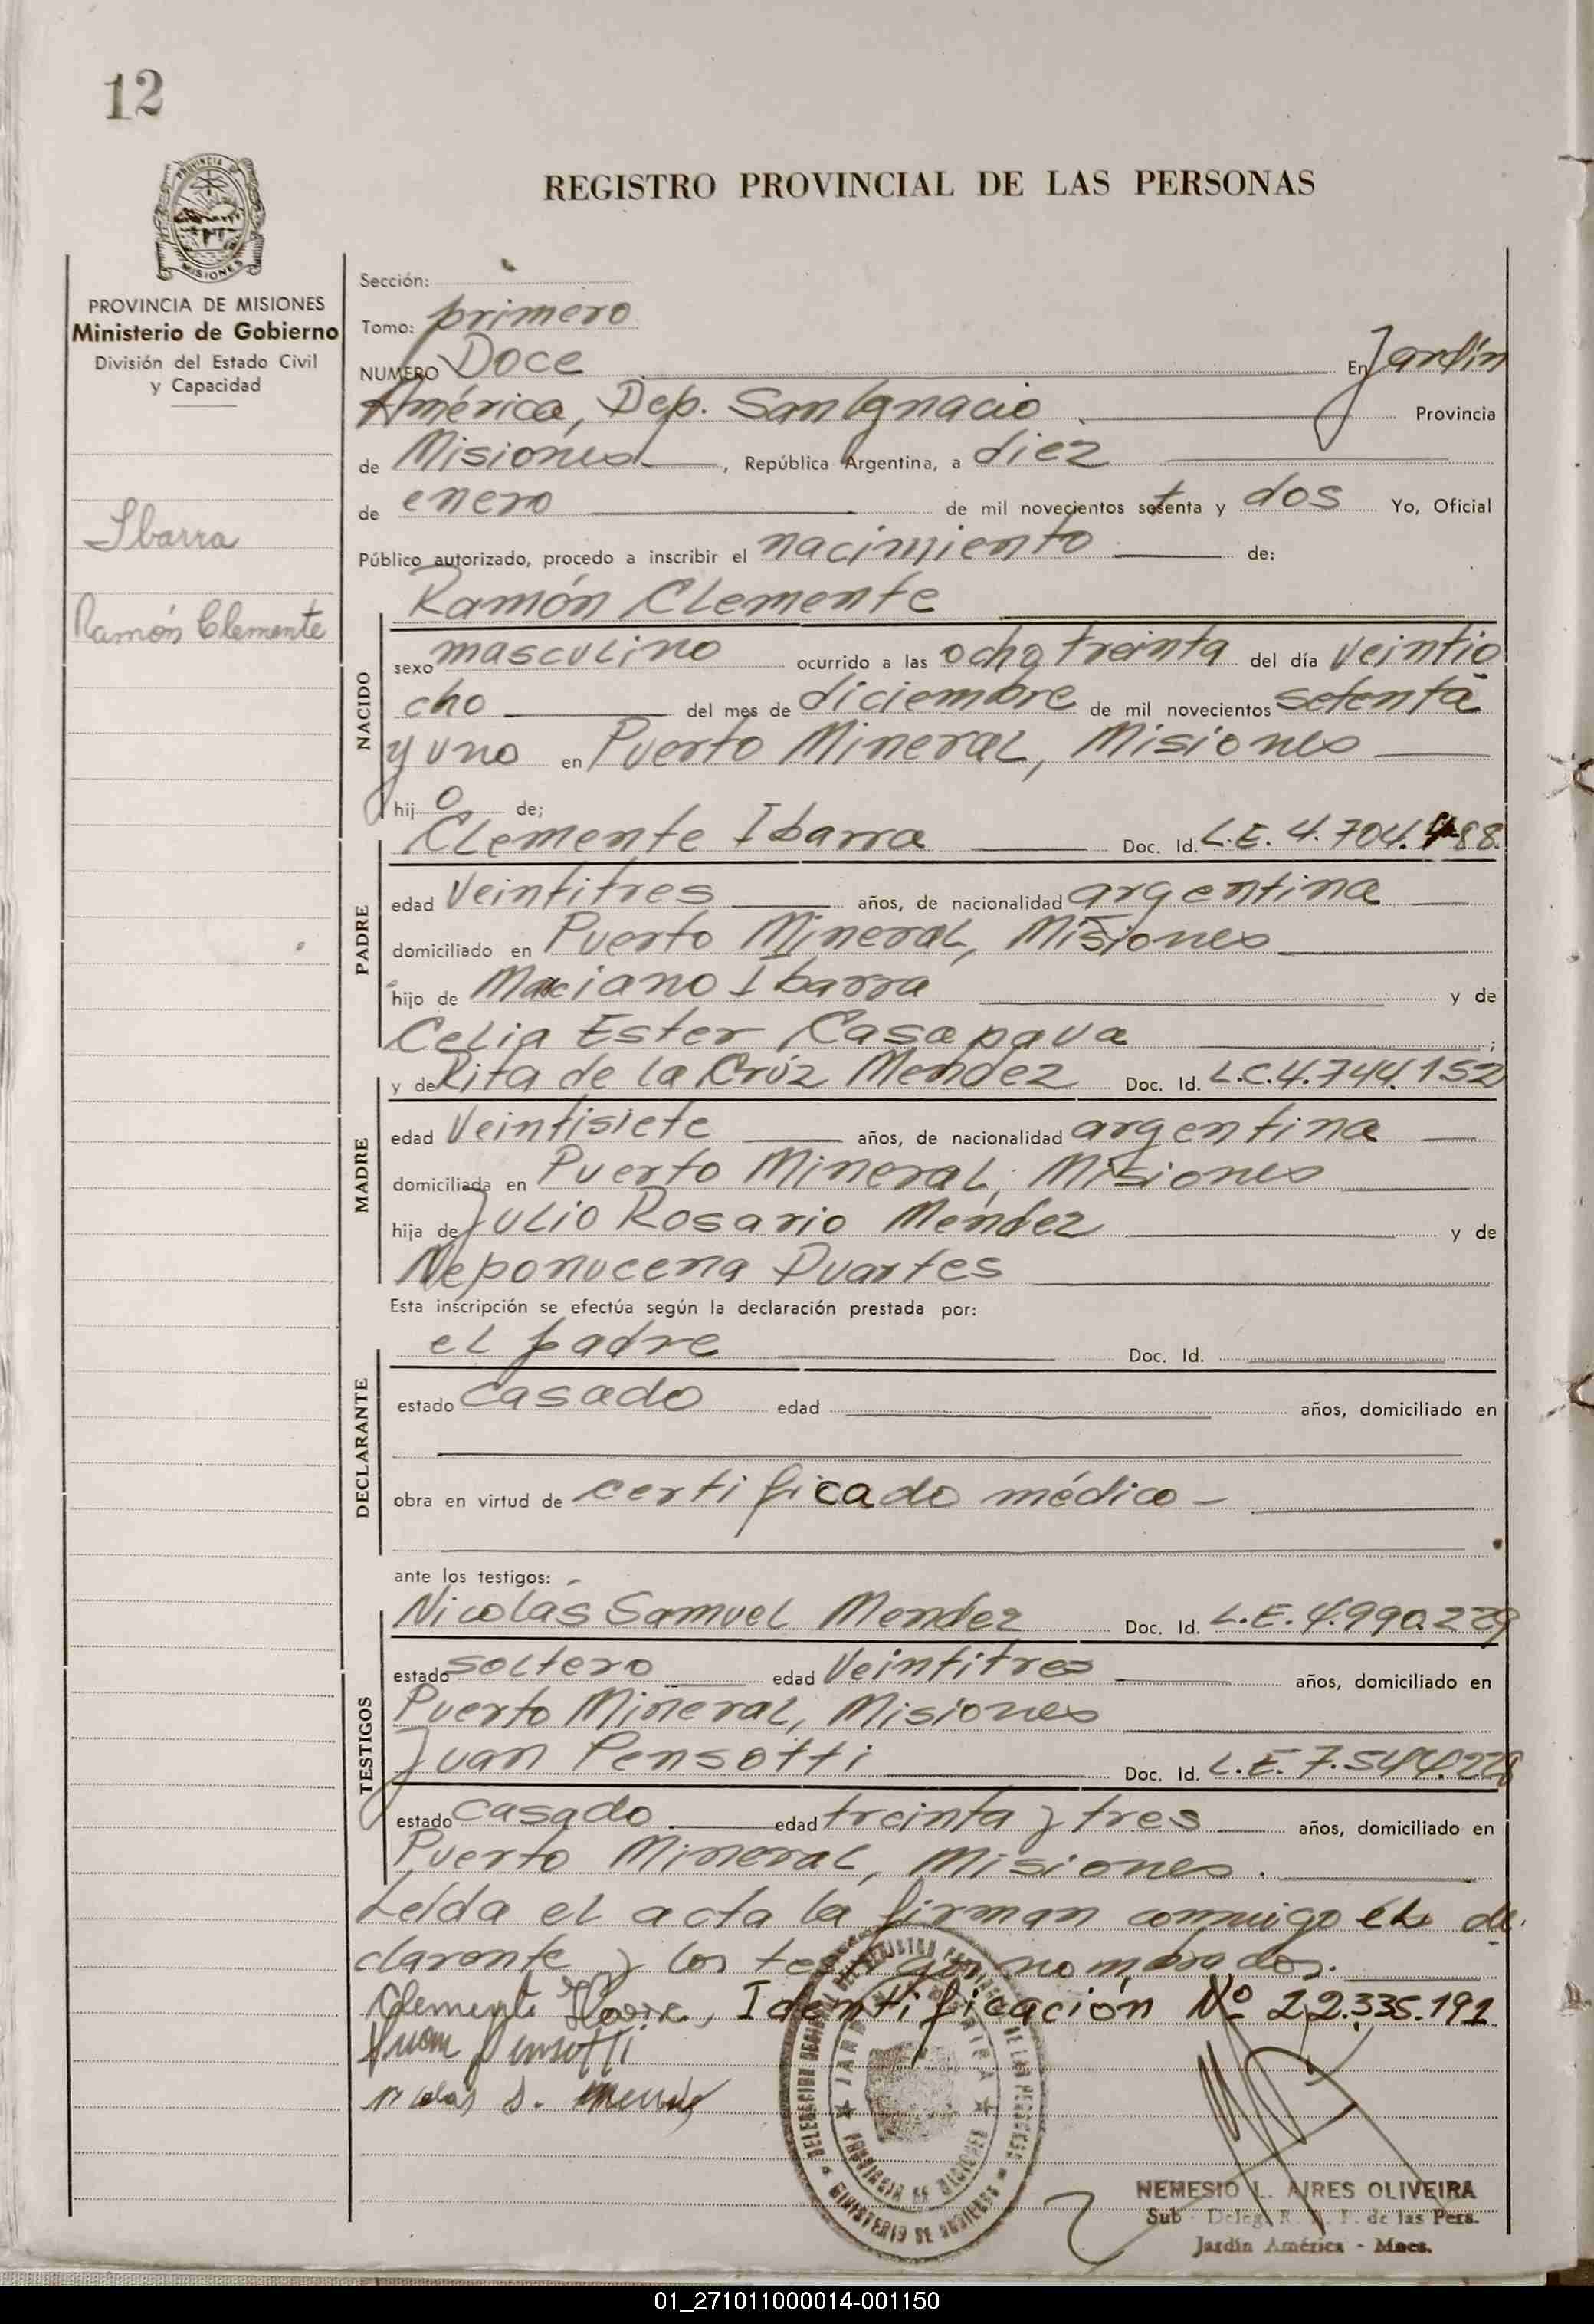 12
REGISTRO PROVINCIAL DE LAS PERSONAS
PROVINCIA DE MISIONES
Ministerio de Gobierno
División del Estado Civil
y Capacidad
Ibarra
Ramón Clemente
Sección:
Tomo: primero
NUMERO Doce En Jardín
América, Dep. San Ignacio Provincia
de Misiones, República Argentina, a diez
de enero de mil novecientos setenta y dos Yo, Oficial
Público autorizado, procedo a inscribir el nacimiento de:
Ramón Clemente
NACIDO
sexo masculino ocurrido a las ocho treinta del día veintio
cho del mes de diciembre de mil novecientos setenta
y uno en Puerto Mineral, Misiones
hijo de;
Clemente Ibarra Doc. Id. L.E. 4.704.488
PADRE
edad veintitres años, de nacionalidad argentina
domiciliado en Puerto Mineral, Misiones
hijo de Marciano Ibarra y de
Celia Ester Casapava;
y de Rita de la Crúz Mendez Doc. Id. L.C. 4.744.152
MADRE
edad Veintisiete años, de nacionalidad argentina
domiciliada en Puerto Mineral, Misiones
hija de Julio Rosario Mendez y de
Neponucena Duartes
Esta inscripción se efectúa según la declaración prestada por:
el padre Doc. Id.
DECLARANTE
estado casado edad años, domiciliado en
obra en virtud de certificado médico -
ante los testigos:
Nicolás Samuel Mendez Doc. Id. L.E. 4.990.229
TESTIGOS
estado soltero edad Veintitres años, domiciliado en
Puerto Mineral, Misiones
Juan Pensotti Doc. Id. L.E. 7.544.228
estado casado edad treinta y tres años, domiciliado en
Puerto Mineral, Misiones.
Leída el acta la firman conmigo el de
clarante y los testigos nombrados.
Clemente Ibarra, Identificación Nº 22.335.191
Juan Pensotti
Nicolas S. Mendez
JARDIN AMERICA
PROVINCIA DE MISIONES
MINISTERIO DE GOBIERNO
NEMESIO L. AIRES OLIVEIRA
Sub - Deleg. R. P. de las Pers.
Jardín América - Mnes.
01_271011000014-001150